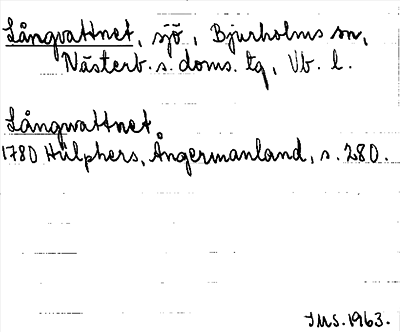 Långvattnet, sjö, Bjurholms sn,
Västerb. s. doms. tg, Vb. l.
Långwattnet
1780 Hülphers, Ångermanland, s. 280.
IMS. 1963.